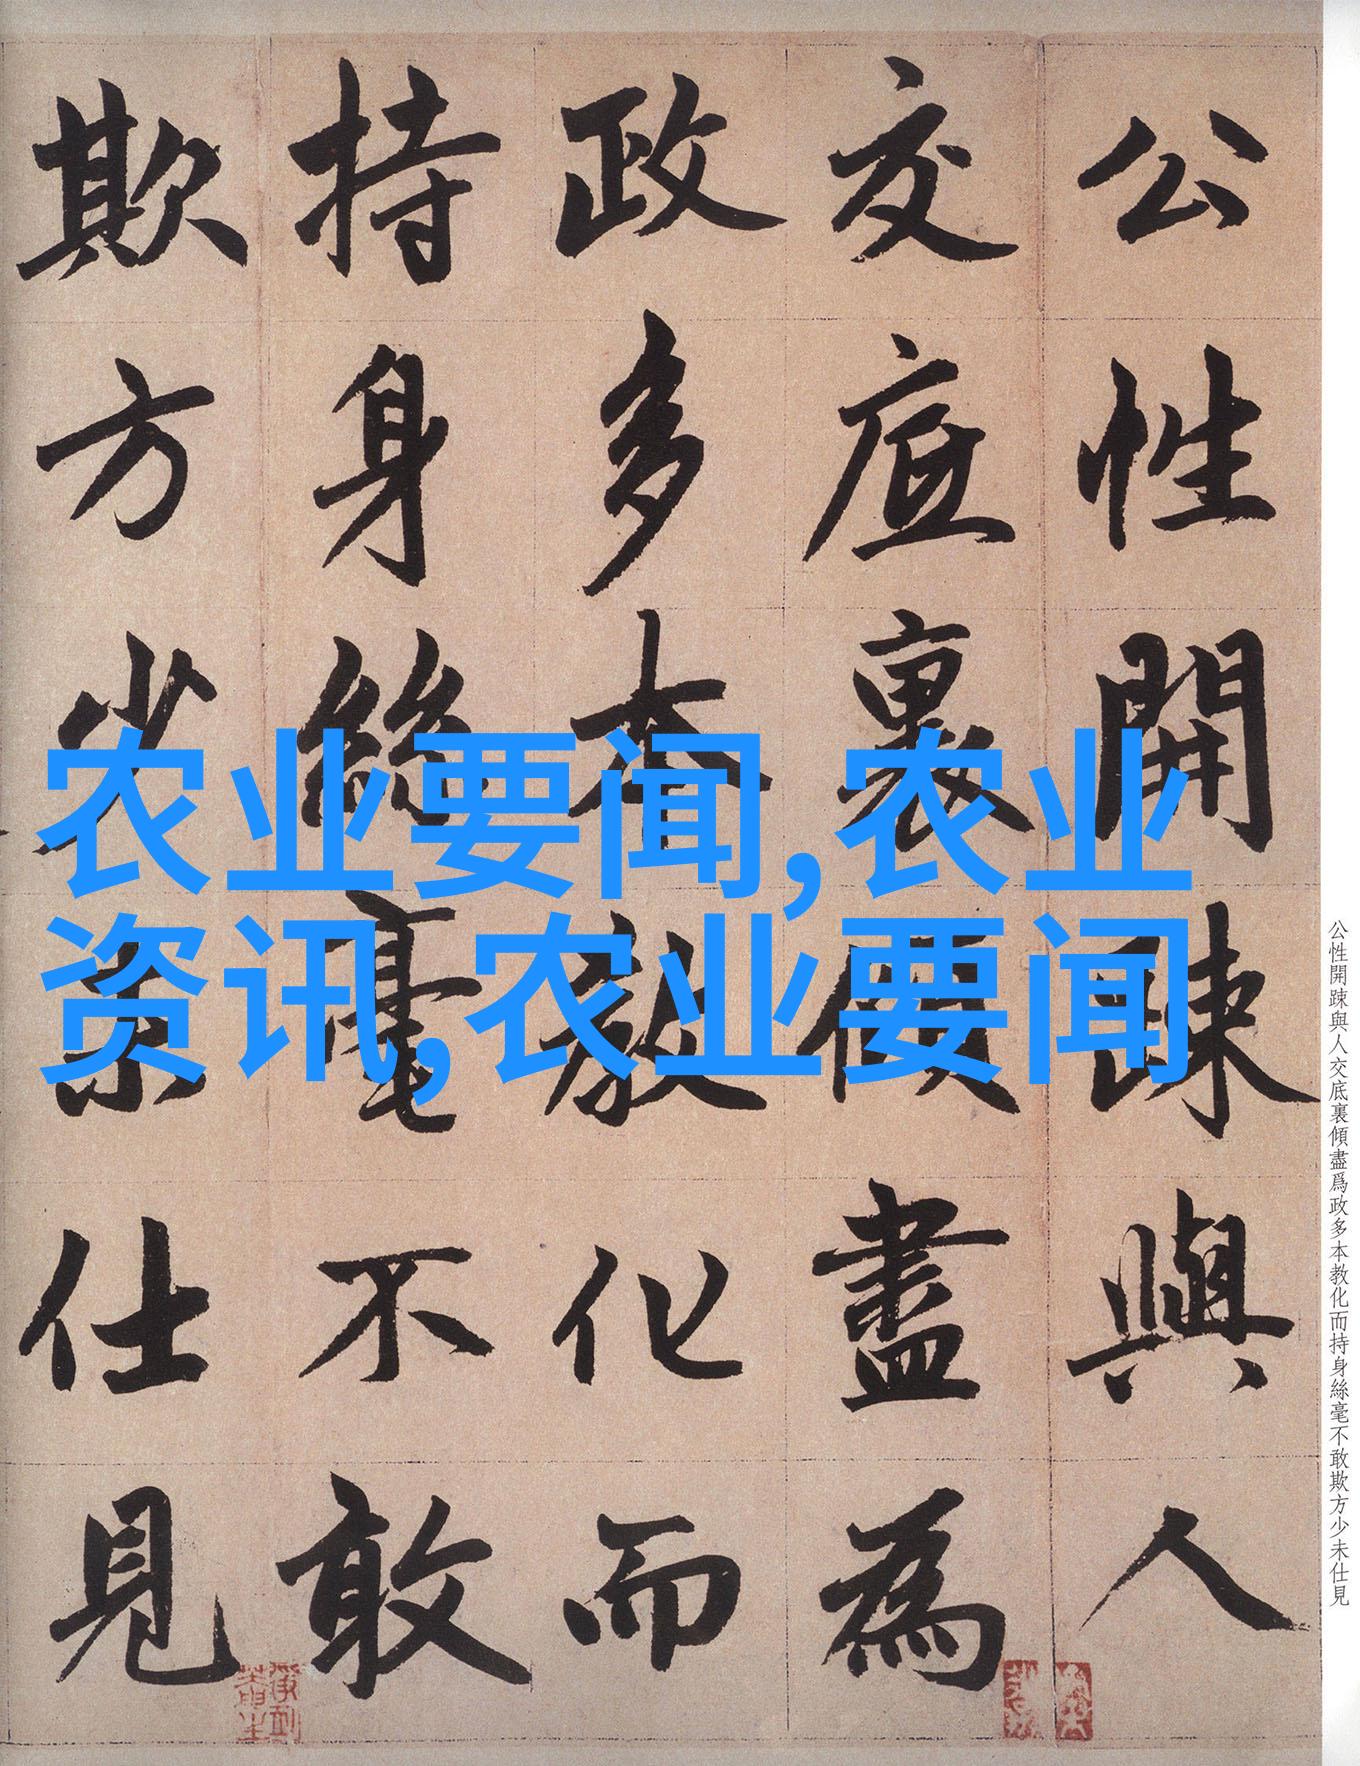 公性開踈與人
交底裏傾盡為
政多本教化而
持身絲毫不敢
欺方少未仕見
农业要闻,农业
资讯,农业要闻
公性開踈與人交底裏傾盡爲政多本教化而持身絲毫不敢欺方少未仕見